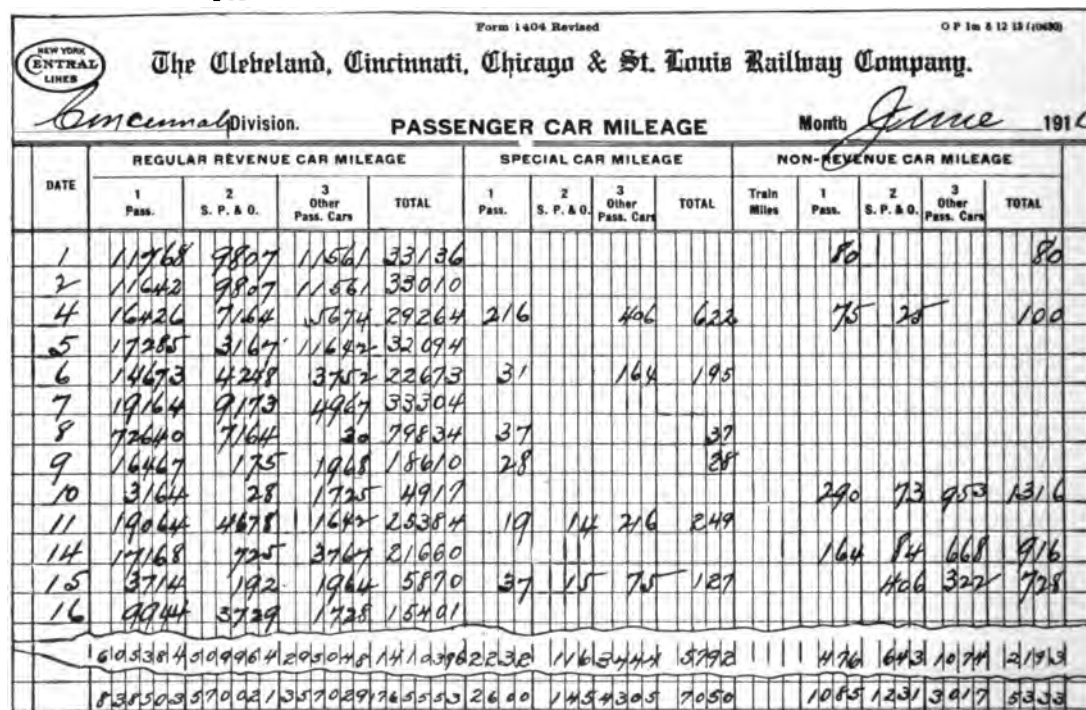 Form 1404 Revised O P 1m 8 12 13
NEW YORK CENTRAL LINES
The Cleveland, Cincinnati, Chicago & St. Louis Railway Company.
Cincinnati Division. PASSENGER CAR MILEAGE Month June 191
DATE REGULAR REVENUE CAR MILEAGE SPECIAL CAR MILEAGE NON-REVENUE CAR MILEAGE
1 Pass. 2 S. P. & O. 3 Other Pass. Cars TOTAL 1 Pass. 2 S. P. & O. 3 Other Pass. Cars TOTAL Train Miles 1 Pass. 2 S. P. & O. 3 Other Pass. Cars TOTAL
1 11768 9807 11561 33136 80 80
2 11642 9807 11561 33010
4 16426 7164 5674 29264 216 406 622 75 25 100
5 17285 3167 11642 32094
6 14673 4248 3752 22673 31 164 195
7 19164 9173 4967 33304
8 72640 7164 30 79834 37 37
9 16467 175 1968 18610 28 28
10 3164 28 1725 4917 290 73 953 1316
11 19064 4678 1642 25384 19 14 216 249
14 17168 725 3767 21660 164 84 668 916
15 3714 192 1964 5870 37 15 75 127 406 322 728
16 9944 3729 1728 15401
605384 509964 295048 1410396 2232 116 3444 5792 476 643 1074 2193
838503 570021 357029 1765553 2600 145 4305 7050 1085 1231 3017 5333